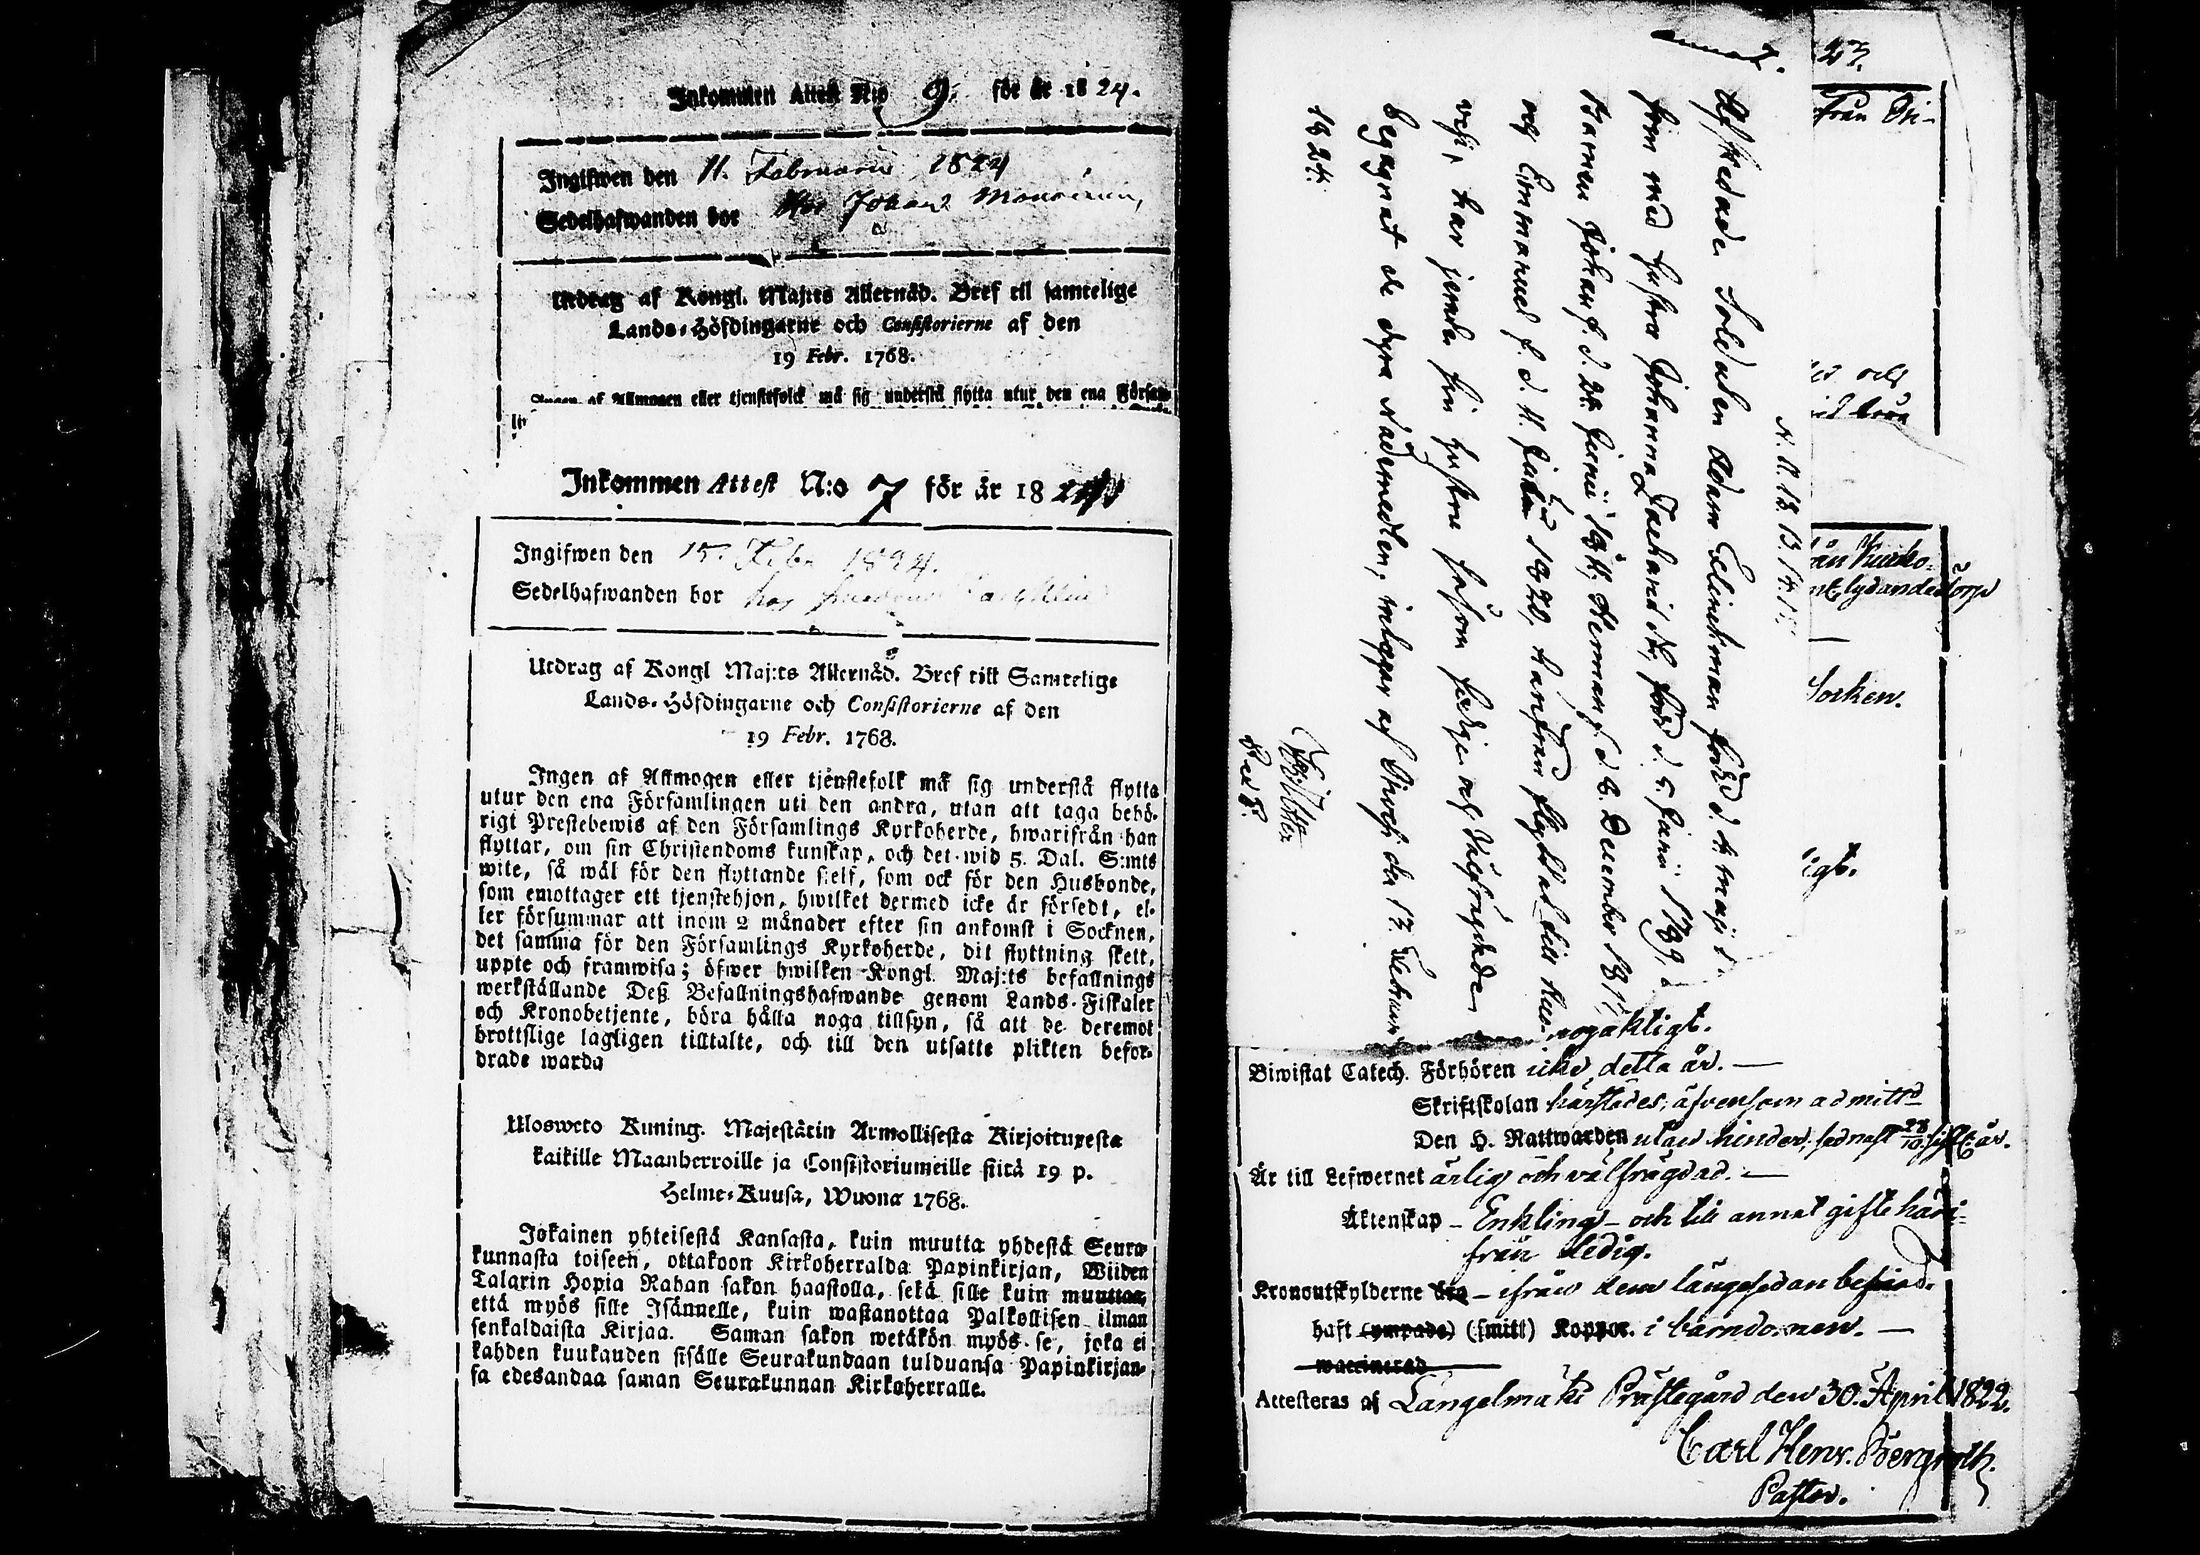 Inkommen Attest N:o 9. för år 1824.
Ingifwen den 11. Februarii 1824
Sedelhafwanden bor Hos Johan
Utdrag af Kongl. Maj:ts Allernåd. Bref til samtelige
Lands-Höfdingarne och Consistorierne af den
19 Febr. 1768.
Ingen af Allmogen eller tjenstefolck må sig understå flytta utur den ena Försam-
Inkommen Attest N:o 7 för år 1824
Ingifwen den 15. Febr 1824.
Sedelhafwanden bor hos
Utdrag af Kongl Maj:ts Allernåd. Bref till Samtelige
Lands-Höfdingarne och Consistorierne af den
19 Febr. 1768.
Ingen af Allmogen eller tjenstefolk må sig understå flytta
utur den ena Församlingen uti den andra, utan att taga behö-
rigt Prestebewis af den Församlings Kyrkoherde, hwarifrån han
flyttar, om sin Christendoms kunskap, och det wid 5. Dal. S:mts
wite, så wäl för den flyttande sjelf, som ock för den Husbonde,
som emottager ett tjenstehjon, hwilket dermed icke är försedt, el-
ler försummar att inom 2 månader efter sin ankomst i Socknen,
det samma för den Församlings Kyrkoherde, dit flyttning skett,
uppte och framwisa; öfwer hwilken Kongl. Maj:ts befallnings
werkställande Deß Befallningshafwande genom Lands-Fiskaler
och Kronobetjente, böra hålla noga tillsyn, så att de deremot
brottslige lagligen tilltalte, och till den utsatte plikten befor-
drade warda
Ulosweto Kuning. Majestätin Armollisesta Kirjoituxesta
kaikille Maanherroille ja Consistoriumeille siitä 19 p.
Helme-Kuusa, Wuona 1768.
Jokainen yhteisestä Kansasta, kuin muutta yhdestä Seura-
kunnasta toiseen, ottakoon Kirkoherralda Papinkirjan, Wiiden
Talarin Hopia Rahan sakon haastolla, sekä sille kuin muuttaa,
että myös sille Isännelle, kuin wastanottaa Palkollisen ilman
senkaldaista Kirjaa. Saman sakon wetäkön myös se, joka ei
kahden kuukauden sisälle Seurakundaan tulduansa Papinkirjan-
sa edesandaa saman Seurakunnan Kirkoherralle.
23.
Från Ori-
och
Socken.
Afskedade Soldaten Adam Elinehman född d. 4 Maji
som med hustru Johanna Zachariæ dr, född d. 5. Junii 1789, &
Barnen Johan f. d. 24. Junii 1814, Herman f. d. 6. December 1817,
och Emmanuel f. d. 11. 1820, härifrån flyttat till Kuo-
vesi, har jemte sin hustru såsom ärlige och Välfrägdade
begagnat de dyra Nådemedlen, intygar af Orivesi den 13. Februarii
1824.
nogaktigt.
Biwistat Catech. Förhören icke detta år. —
Skriftskolan härstädes, äfvensom admitt:d
Den H. Nattwarden utan hinder, sednast 28/10 sistl. år.
Är till Lefwernet ärlig och välfrägdad. —
Äktenskap — Enkling — och till annat gifte häri-
från ledig.
Kronoutskylderne är — ifrån dem längesedan befriad.
haft (ympade) (smitt) Koppor. i barndomen. —
waccinerad
Attesteras af Längelmäki Prästegård den 30. April 1822.
Carl Henr. Bergroth.
Pastor.